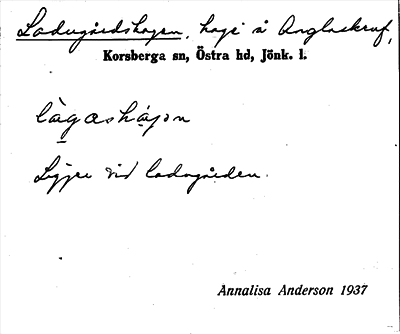 Ladugårdshagen, hage å Anglaskruf,
Korsberga sn, Östra hd, Jönk. l.
làgåshàgɔn
Ligger vid ladugården.
Annalisa Anderson 1937